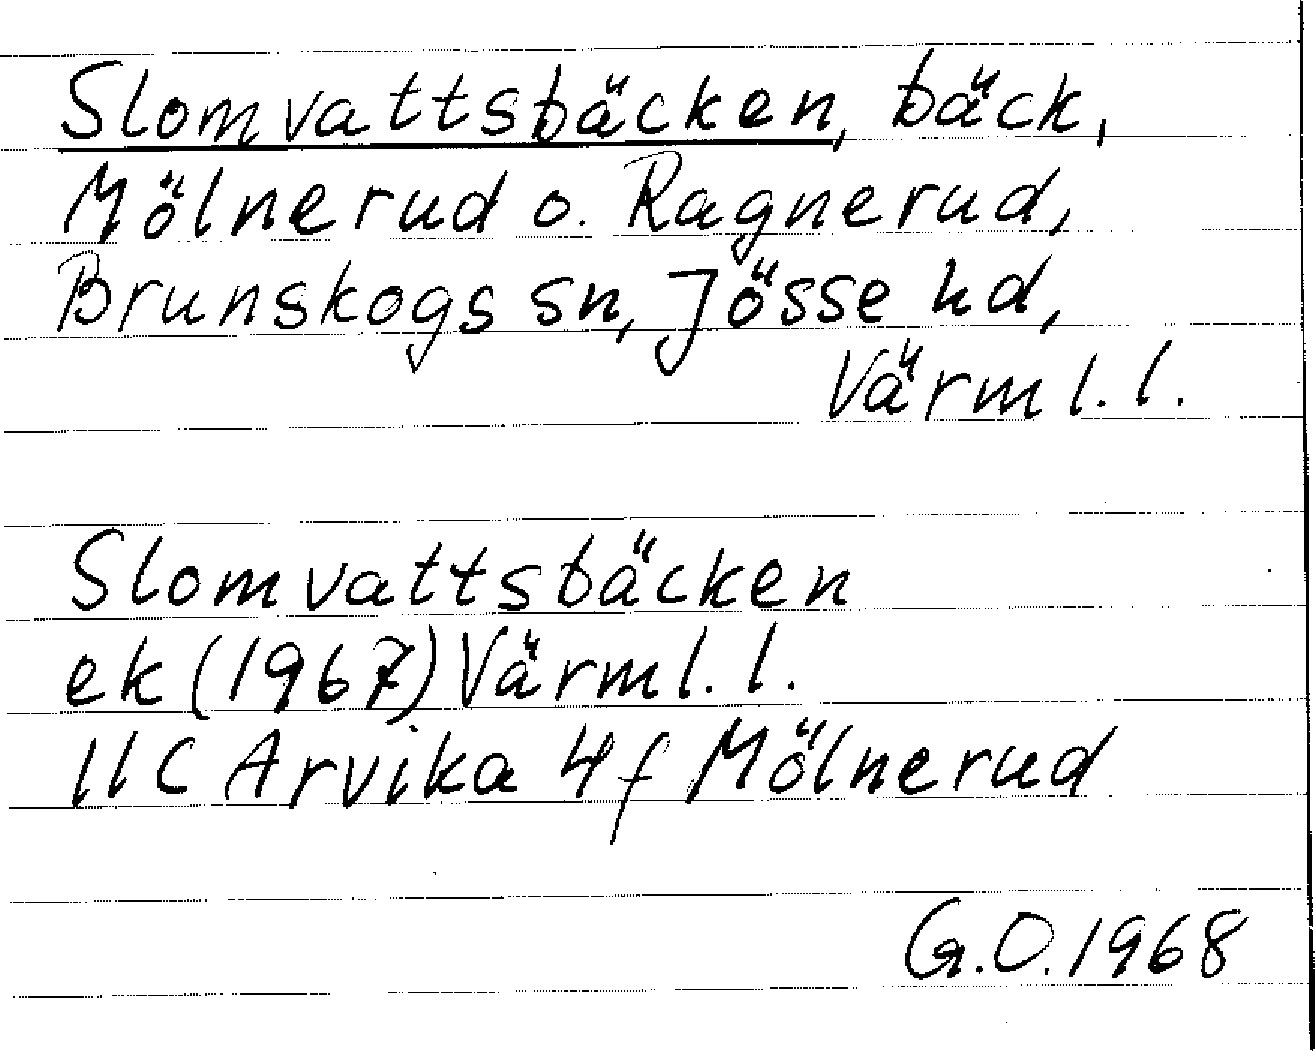 Slomvattsbäcken, bäck,
Mölnerud o. Ragnerud,
Brunskogs sn, Jösse hd,
Värml. l.
Slomvattsbäcken
ek (1967) Värml. l.
11C Arvika 4f Mölnerud
G.O. 1968